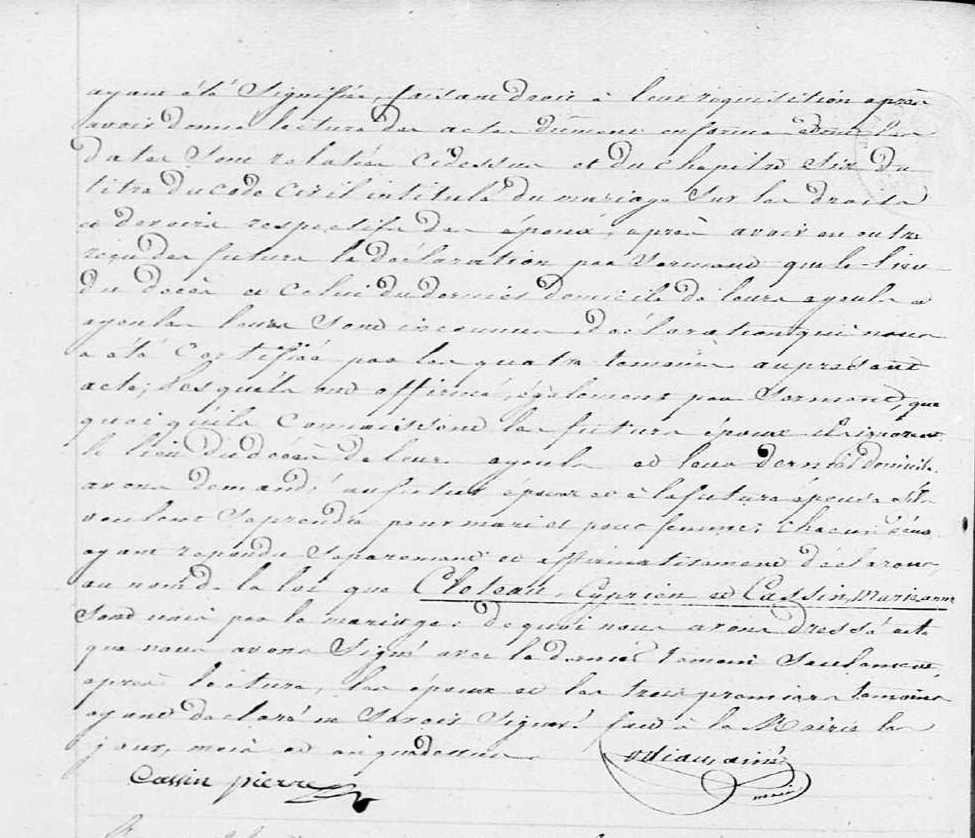 ayant été signifiée, faisant droit à leur réquisition après
avoir donné lecture des actes dûment en forme dont les
dates sont relatées cidessus et du chapitre six du
titre du code civil intitulé du mariage sur les droits
et devoirs respectifs des époux, après avoir en outre
reçu des futurs la déclaration par serment que le lieu
du décès et celui du dernier domicile de leurs ayeuls et
ayeules leurs sont inconnus déclaration qui nous
a été certifiée par les quatre témoins au present
acte, lesquels ont affirmé, également par serment, que
quoiqu'ils connaissent les futurs époux ils ignorent
le lieu du décès de leurs ayeuls et leur dernier domicile.
avons demandé au futur époux et à la future épouse s'ils
veulent se prendre pour mari et pour femme; chacun d'eux
ayant repondu separement et affirmativement déclarons,
au nom de la loi que Cloteau, Cyprien et Cassin, Marie anne
sont unis par le mariage: de quoi nous avons dressé acte
que nous avons signé avec le dernier temoin seulement,
après lecture, les époux et les trois premiers temoins
ayant declaré ne savoir signer. fait à la Mairie les
jour, mois et an que dessus.
Cassin pierre
ainé
maire